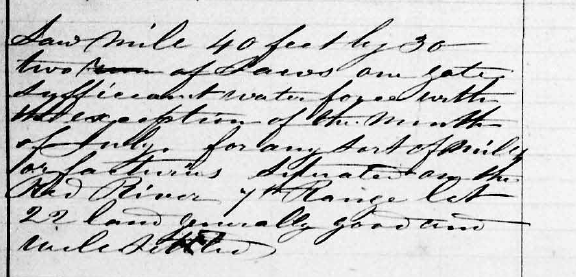 Saw mile 40 feet by 30
two run of Saws one gate
sufficeant water force with
the exception of the month
of July, for any sort of mills
or facturies situated on the
Red River 7th Range let
22 land generally good and
wele settled